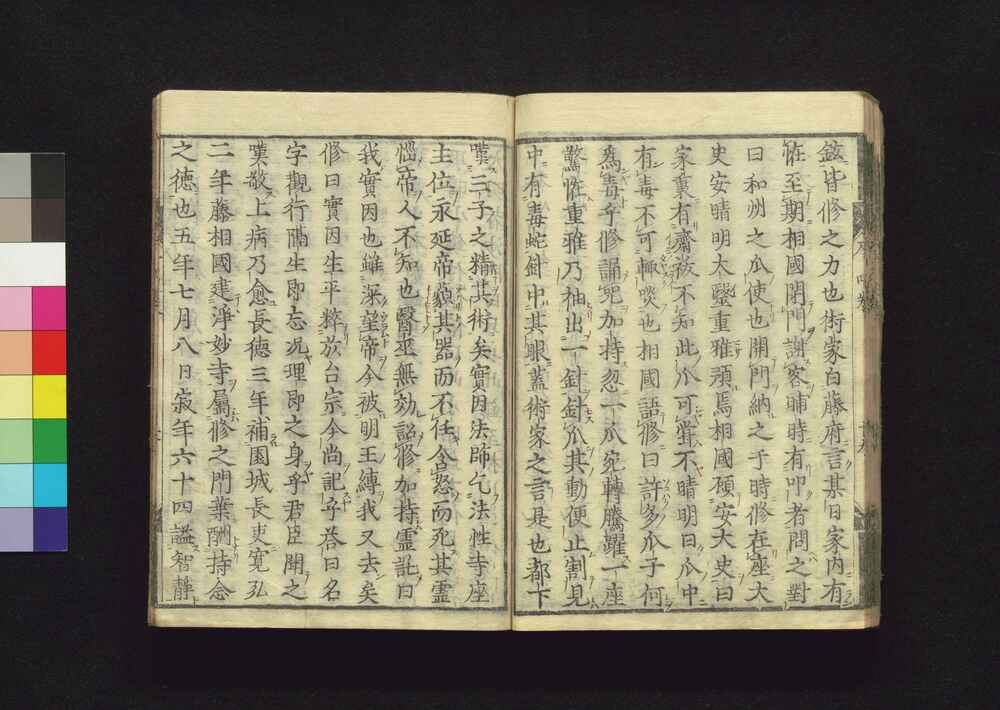 鉉皆修之力也術家白藤府言某日家内有
恠至期相國閉門謝客晡時有叩者問之對
曰和州之瓜使也開門納之于時修在座大
史安晴明大毉重雅預焉相國顧安大史曰
家裏有齋祓不知此瓜可嘗不晴明曰瓜中
有毒不可輙啖也相國語修曰許多瓜子何
爲毒乎修誦咒加持忽一瓜宛轉騰躍一座
驚恠重雅乃柚出一針針瓜其動便止割見
中有毒蛇針中其眼蓋術家之言是也都下
嘆三子之精其術矣實因法師乞法性寺座
主位永延帝藐其器而不任含怒而死其靈
惱帝人不知也醫巫無効詔修加持靈託曰
我實因也雖深望帝今被明王縛我又去矣
修曰實因生平粹於台宗今尚記字荅曰名
字觀行隔生即忘况理即之身乎君臣聞之
嘆敬上病乃愈長德三年補園城長吏寛弘
二年藤相國建淨妙寺屬修之門葉酬持念
之德也五年七月八日寂年六十四謚智靜